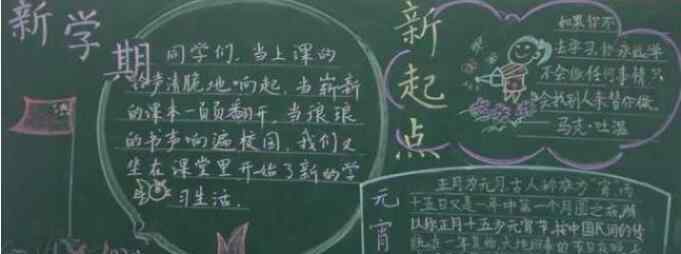 新学期
同学们,当上课的
铃声清脆地响起,当崭新
的课本一页页翻开,当琅琅
的书声响遍校园,我们又
坐在课堂里开始了新的学
习生活.
新起点
如果你不
去学习
不会做任何事情只
会找别人来替你做.
马克·吐温
元宵
正月为元月古人称夜为宵而
十五日又是一年中第一个月圆之夜所
以称正月十五为元宵节.按中国民间的传
统,在一年